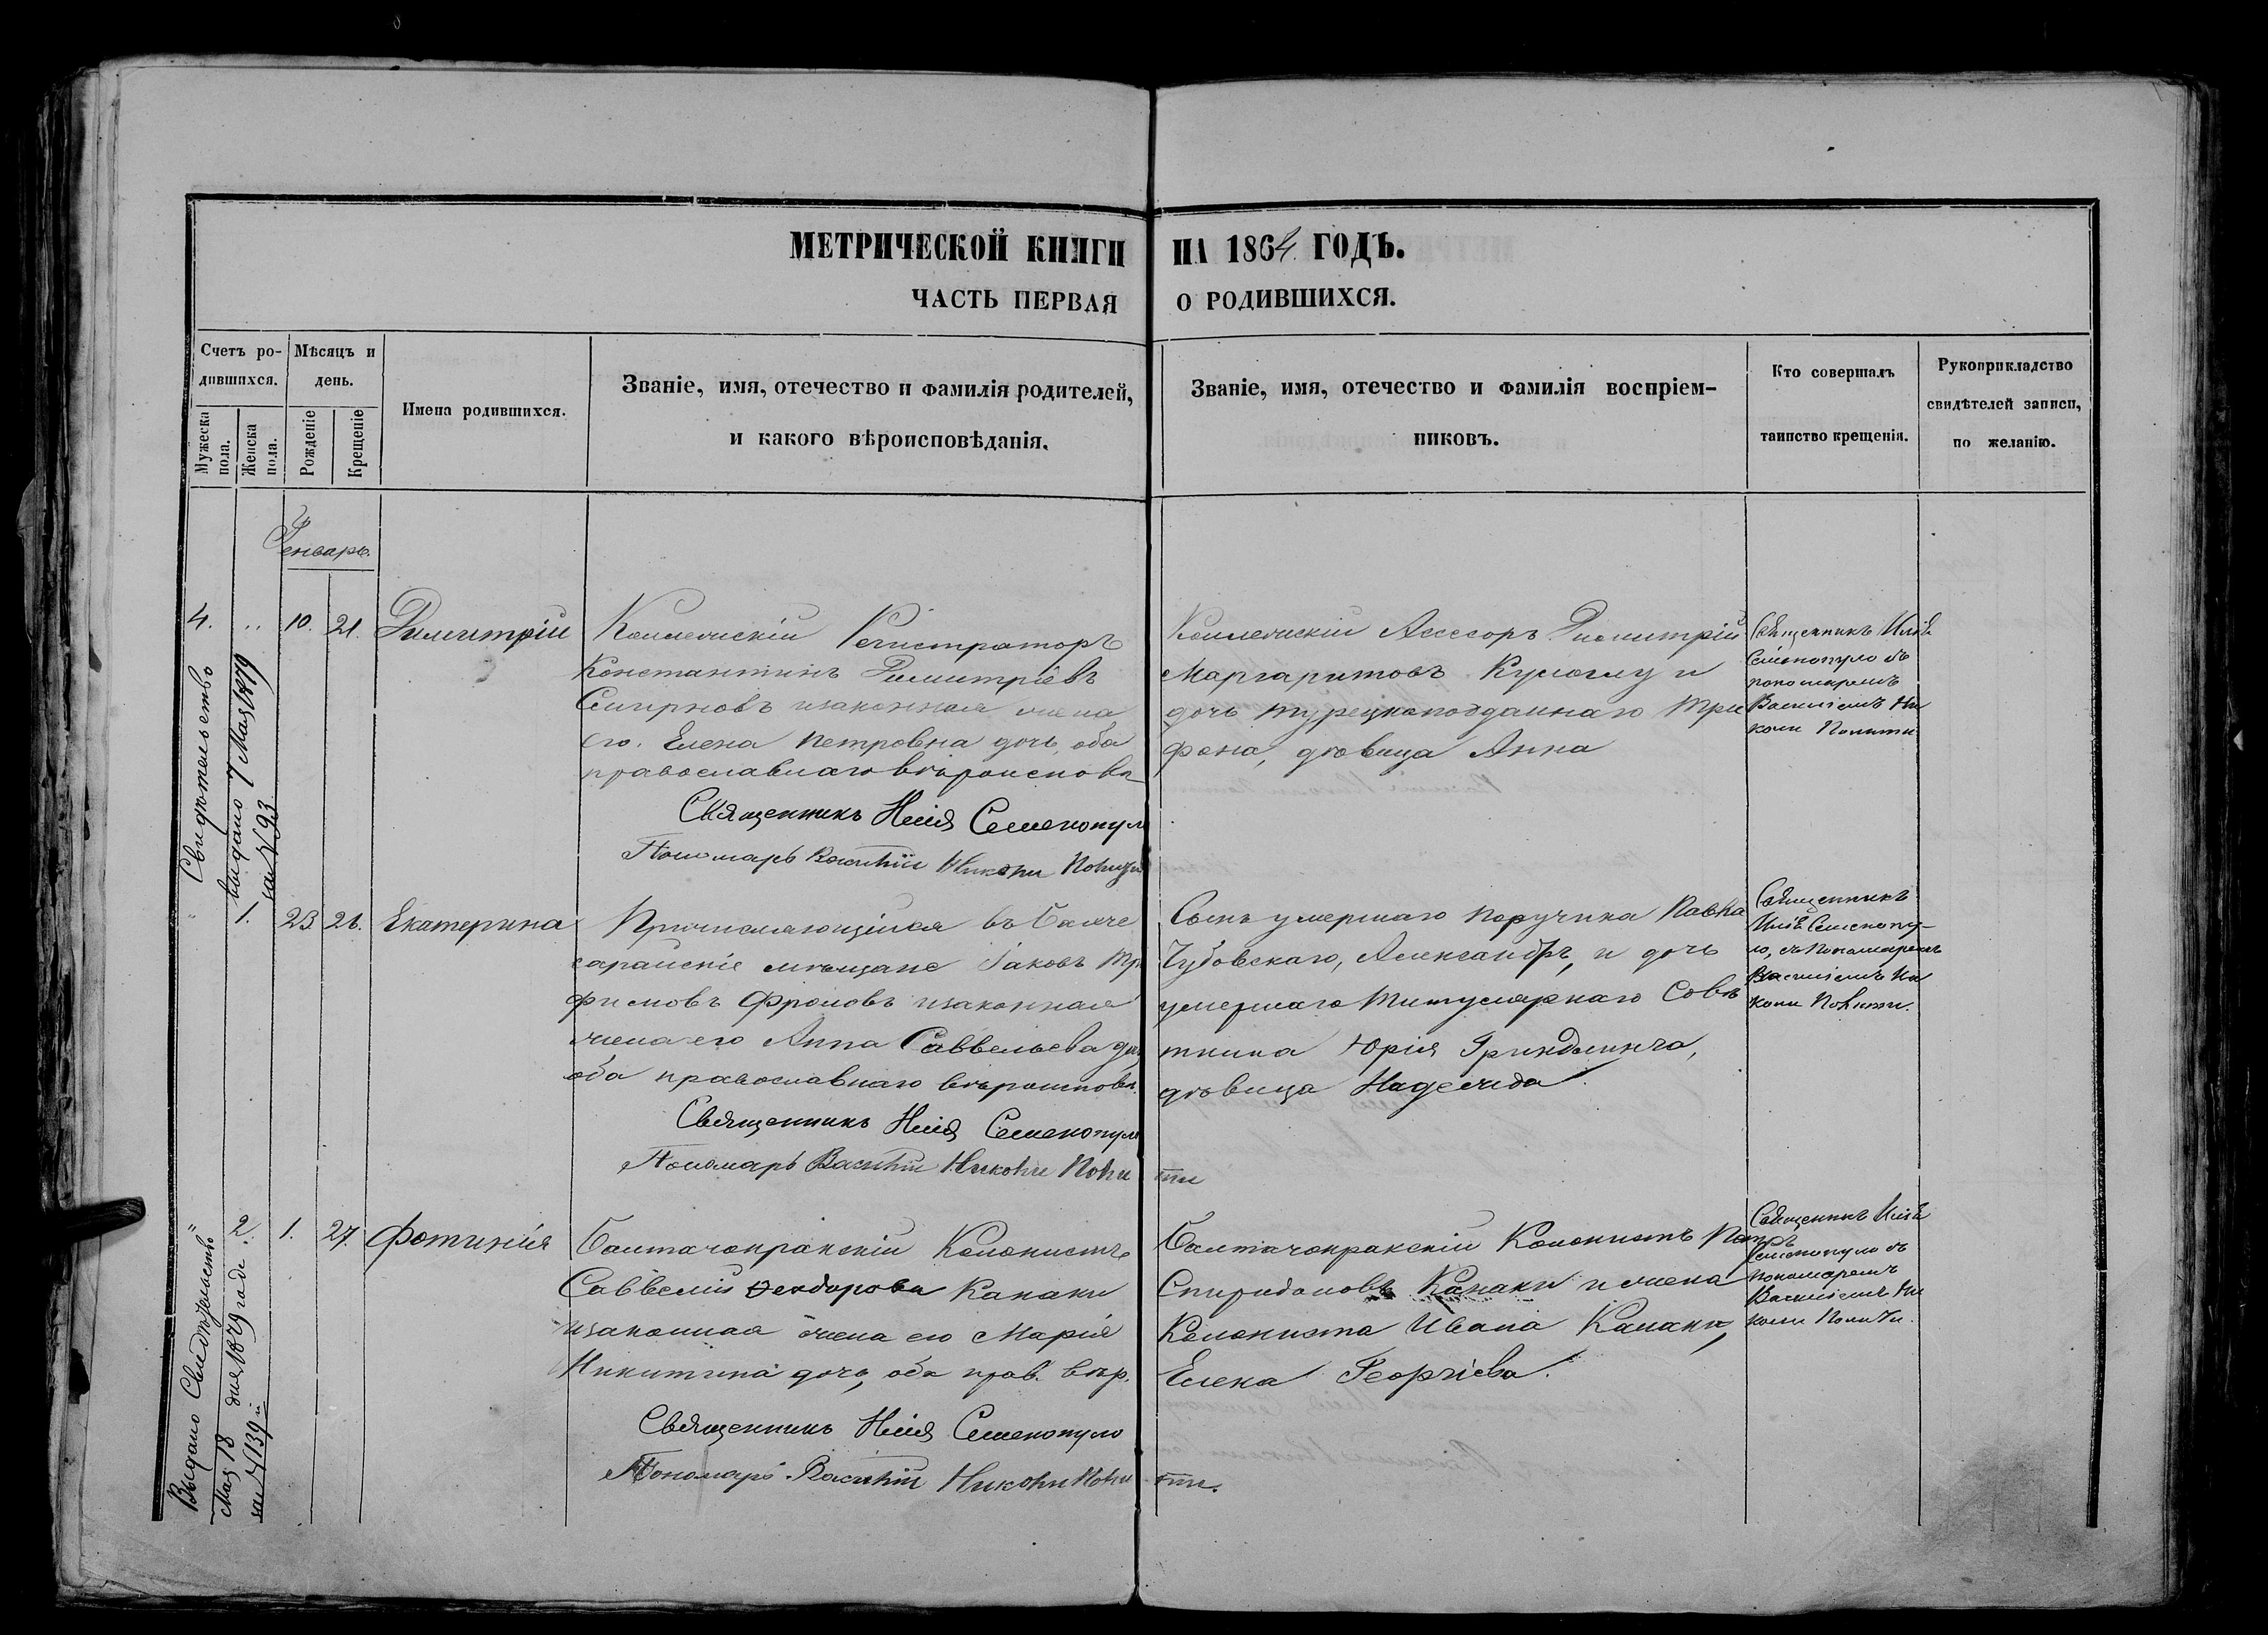 МЕТРИЧЕСКОЙ КНИГИ НА 1864 ГОДЪ.
ЧАСТЬ ПЕРВАЯ О РОДИВШИХСЯ.
Счетъ ро-
дившихся.
Мужеска
пола.
Женска
пола.
Мѣсяцъ и
день.
Рожденіе
Крещеніе
Имена родившихся.
Званіе, имя, отечество и фамилія родителей,
и какого вѣроисповѣданія.
Званіе, имя, отечество и фамилія воспріем-
никовъ.
Кто совершалъ
таинство крещенія.
Рукоприкладство
свидѣтелей записи,
по желанію.
Генварь.
4. 10. 21. Димитрій
Свидѣтельство
выдано 7 Мая 1879
за № 93
Коллежскій Регистраторъ
Константинъ Димитріевъ
Смирновъ изаконная жена
его. Елена Петровна дочь, оба
православнаго вѣроисповѣ
Священникъ Илія Семенопул
Пономарь Василій Николи Полити
Коллежскій Асессоръ Димитрій
Маргаритовъ Кумоглу и
дочь турецкоподданнаго Три
фона, дѣвица Анна
Священникъ Илія
Семенопуло съ
пономаремъ
Василіемъ Ни
коли Полити
1. 23 26. Екатерина
Причисляющійся въ Бахче
сарайскіе мѣщане Іаковъ Тр
фимовъ Фроловъ изаконная
жена его Анна Саввельева доч
оба православнаго вѣроисповѣ.
Священникъ Илія Семенопуло
Пономарь Василій Николи Поли ти
Сынъ умершаго поручика Павла
Чудовскаго, Александръ, и дочь
умершаго Титулярнаго Совѣ
тника Юрія
дѣвица Надежда.
Священникъ
Илія Семенопу-
ло, съ Пономаремъ
Василіемъ Ни
коли Полити.
2. 1. 27. Фотинія
Выдано Свидѣтельство
Мая 18 дня 1879 года
за № 139 й
Балтачокракскій Колонистъ
Саввелій Феодорова Канаки
изаконная жена его Марія
Никитина дочь, оба прав. вѣр.
Священникъ Илія Семенопуло
Пономарь Василій Николи Поли ти.
Балтачокракскій Колонистъ Петръ
Спиридоновъ Канаки и жена
Колониста Ивана Канаки,
Елена Георгіева.
Священникъ Илія
Семенопуло съ
пономаремъ
Василіемъ Ни
коли Полити.